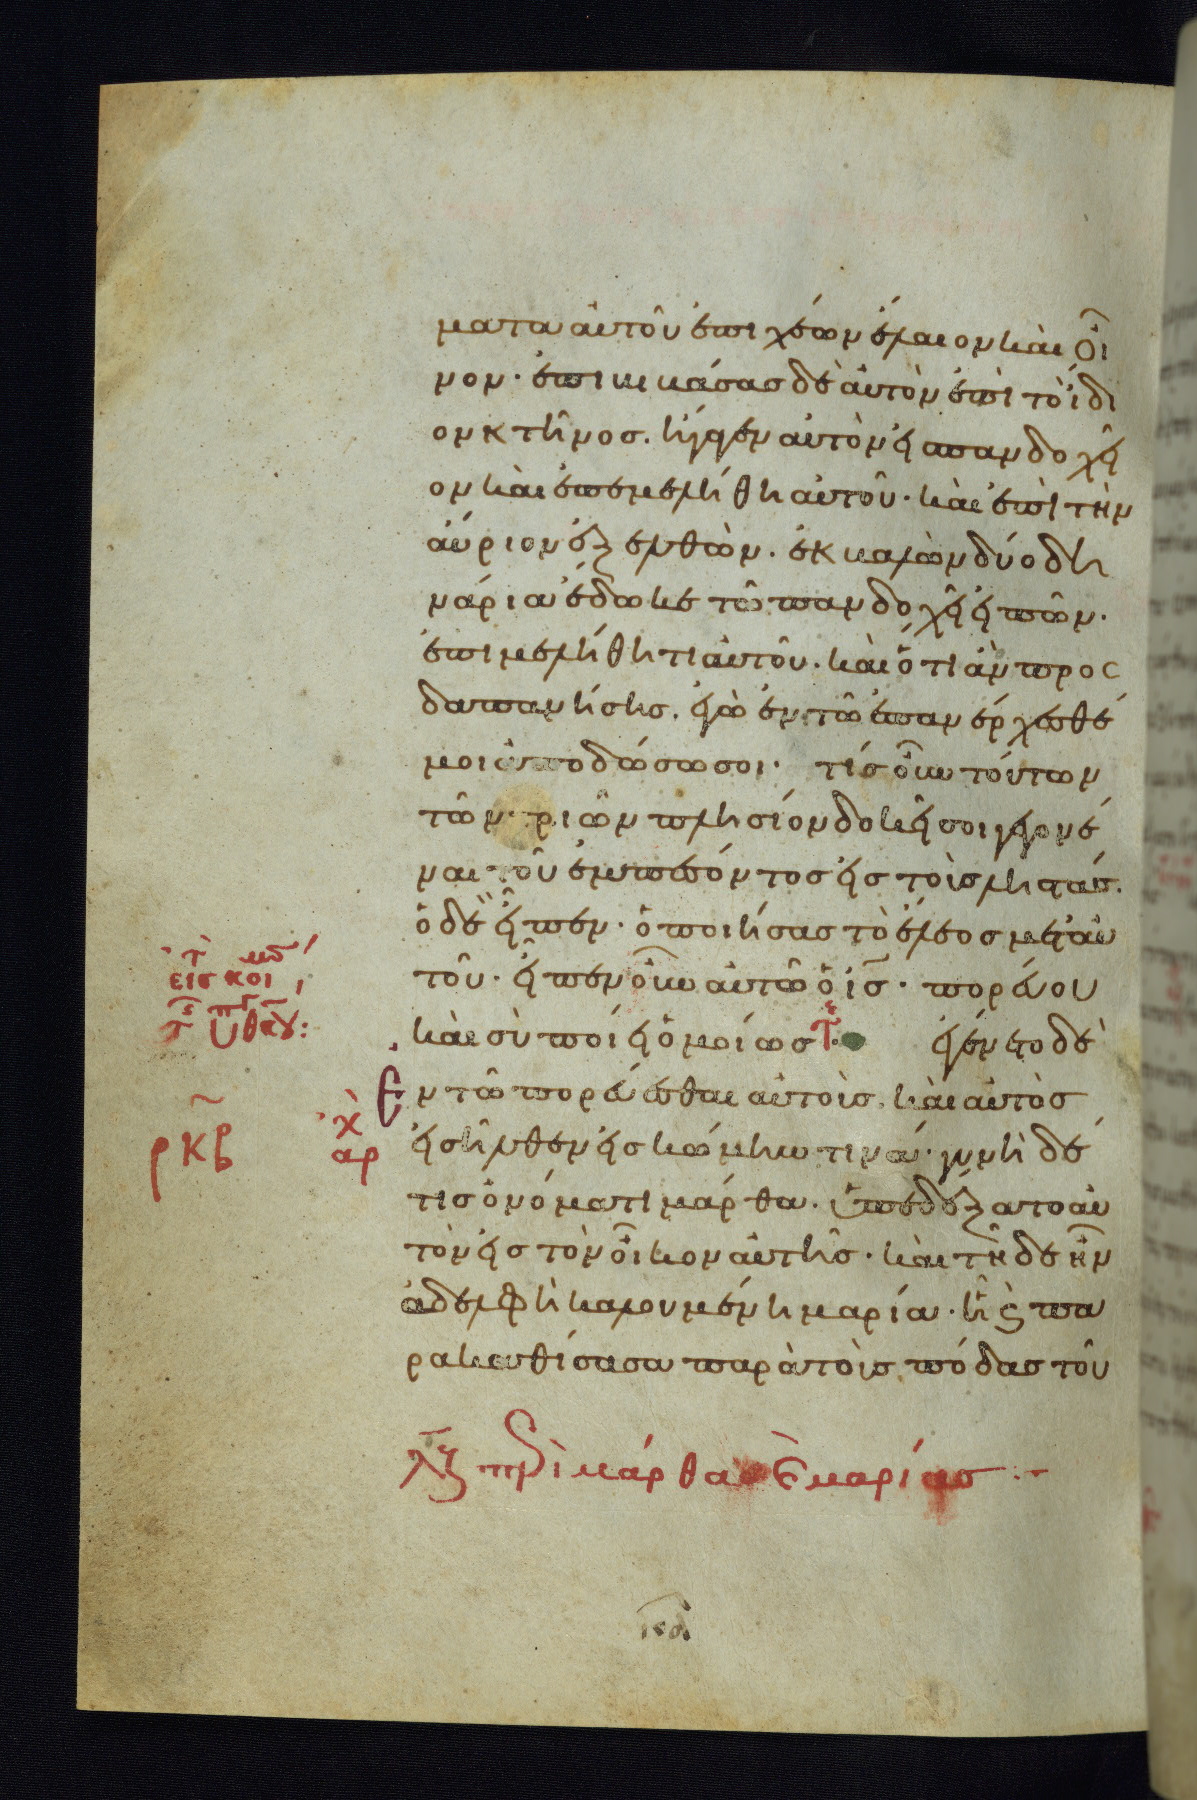 ματα αὐτοῦ ἐπιχέων ἔλαιον καὶ οἶ
νον· ἐπικικάσας δὲ αὐτὸν ἐπὶ τὸ ἴδι
ον κτῆνος. ἤγαγεν αὐτὸν εἰ πανδοχεῖ
ον καὶ ἐπεμελήθη αὐτοῦ· καὶ ἐπὶ τὴν
αὔριον ἐξελθὼν. ἐκκαλὼν δύο δη
νάρια ἔδωκε τῶ πανδοχεῖ εἰπῶν·
ἐπιμελήθητι αὐτοῦ. καὶ ὅτι ἀν προς
δαπανήσης. ἐγὼ ἐν τῶ ἐπανέρχεσθέ
μοι ἀποδώσω σοι· τίς οὖν τούτων
τῶν τριῶν πλησίον δοκεῖ σοι γεγονέ
ναι τοῦ ἐμπεσόντος εἰς τοὶς ληστάς.
ὁ δὲ εἶπεν· ὁ ποιήσας τὸ ἔλεος μετ' αυ
τοῦ· εἶπεν οὖν αὐτῶ ὁ ις· πορεύου
καὶ σὺ ποίει ὁμοίως τε· εγένετο δὲ
Ἐν τῶ πορεύεσθαι αὐτοὶς. καὶ αὐτὸς
εἰσῆλθεν εἰς κώμην τινά· γυνὴ δέ
τις ὀνόματι μάρθα. ὑπεδέξατο αυ
τὸν εἰς τὸν οἶκον αὐτῆς· καὶ τῆδε ἦν
ἀδελφὴ καλουμένη μαρία· ἣ ϛ πα
ρακαθίσασα παρὰ τοὶς πόδας τοῦ
εισ κοι
ρκβ
αρχ
μάρθας ϛ μαρίας